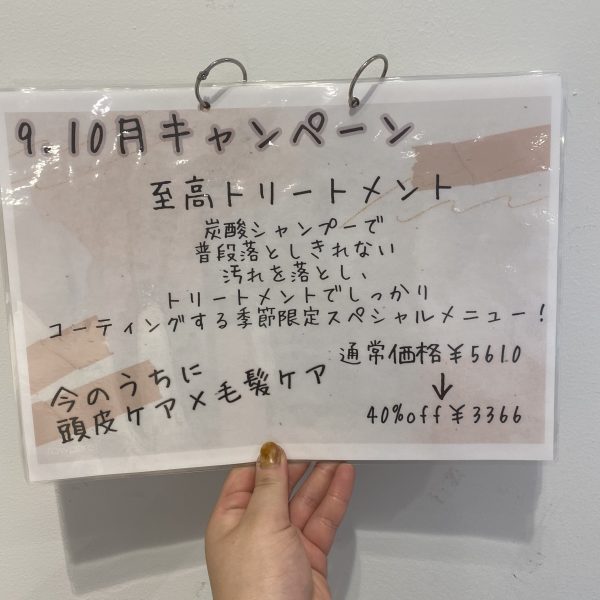 9.10月キャンペーン
至高トリートメント
炭酸シャンプーで
普段落としきれない
汚れを落とし、
トリートメントでしっかり
コーティングする季節限定スペシャルメニュー！
通常価格¥5610
↓
40%off¥3366
今のうちに
頭皮ケア×毛髪ケア